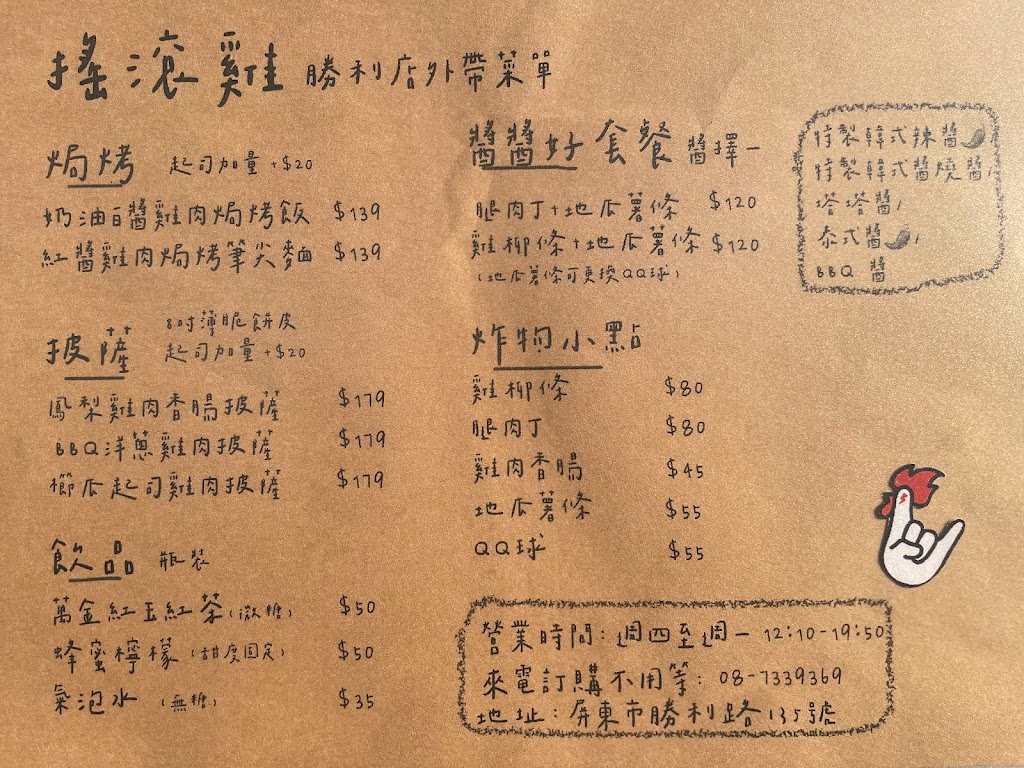 搖滾雞 勝利店外帶菜單
焗烤 起司加量+$20
奶油白醬雞肉焗烤飯 $139
紅醬雞肉焗烤筆尖麵 $139
披薩 8吋薄脆餅皮
起司加量+$20
鳳梨雞肉香腸披薩 $179
BBQ洋蔥雞肉披薩 $179
櫛瓜起司雞肉披薩 $179
飲品 瓶裝
萬金紅玉紅茶(微糖) $50
蜂蜜檸檬(甜度固定) $50
氣泡水 (無糖) $35
醬醬好套餐 醬擇一
腿肉丁+地瓜薯條 $120
雞柳條+地瓜薯條 $120
(地瓜薯條可更換QQ球)
特製韓式辣醬,
特製韓式醬燒醬,
塔塔醬,
泰式醬,
BBQ 醬
炸物小點
雞柳條 $80
腿肉丁 $80
雞肉香腸 $45
地瓜薯條 $55
QQ球 $55
營業時間:週四至週一 12:10-19:50
來電訂購不用等: 08-7339369
地址:屏東市勝利路135號